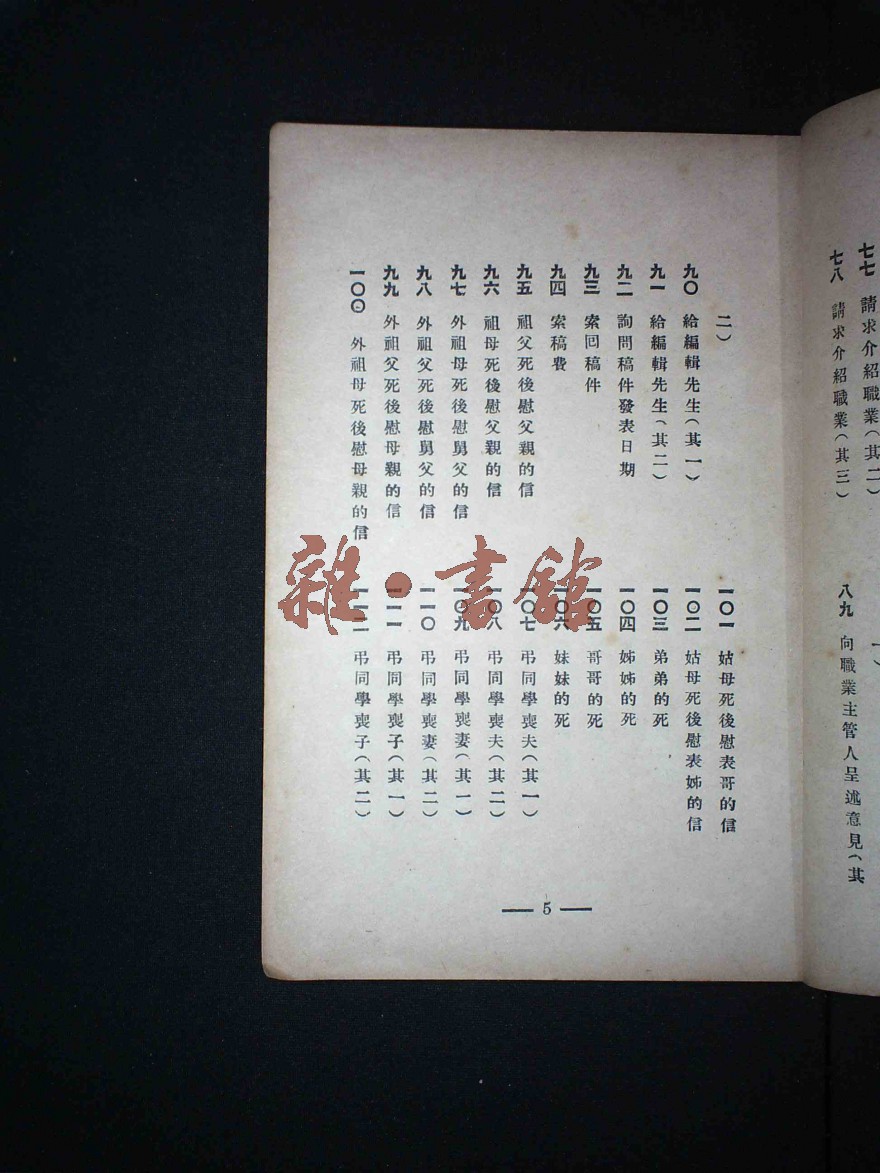 七七 請求介紹職業(其二)
七八 請求介紹職業(其三)
一)
八九 向職業主管人呈述意見(其
二)
九〇 給編輯先生(其一)
九一 給編輯先生(其二)
九二 詢問稿件發表日期
九三 索回稿件
九四 索稿費
九五 祖父死後慰父親的信
九六 祖母死後慰父親的信
九七 外祖母死後慰舅父的信
九八 外祖父死後慰舅父的信
九九 外祖父死後慰母親的信
一〇〇 外祖母死後慰母親的信
一〇一 姑母死後慰表哥的信
一〇二 姑母死後慰表姊的信
一〇三 弟弟的死
一〇四 姊姊的死
一〇五 哥哥的死
一〇六 妹妹的死
一〇七 弔同學喪夫(其一)
一〇八 弔同學喪夫(其二)
一〇九 弔同學喪妻(其一)
一一〇 弔同學喪妻(其二)
一一一 弔同學喪子(其一)
一一二 弔同學喪子(其二)
— 5 —
雜·書館